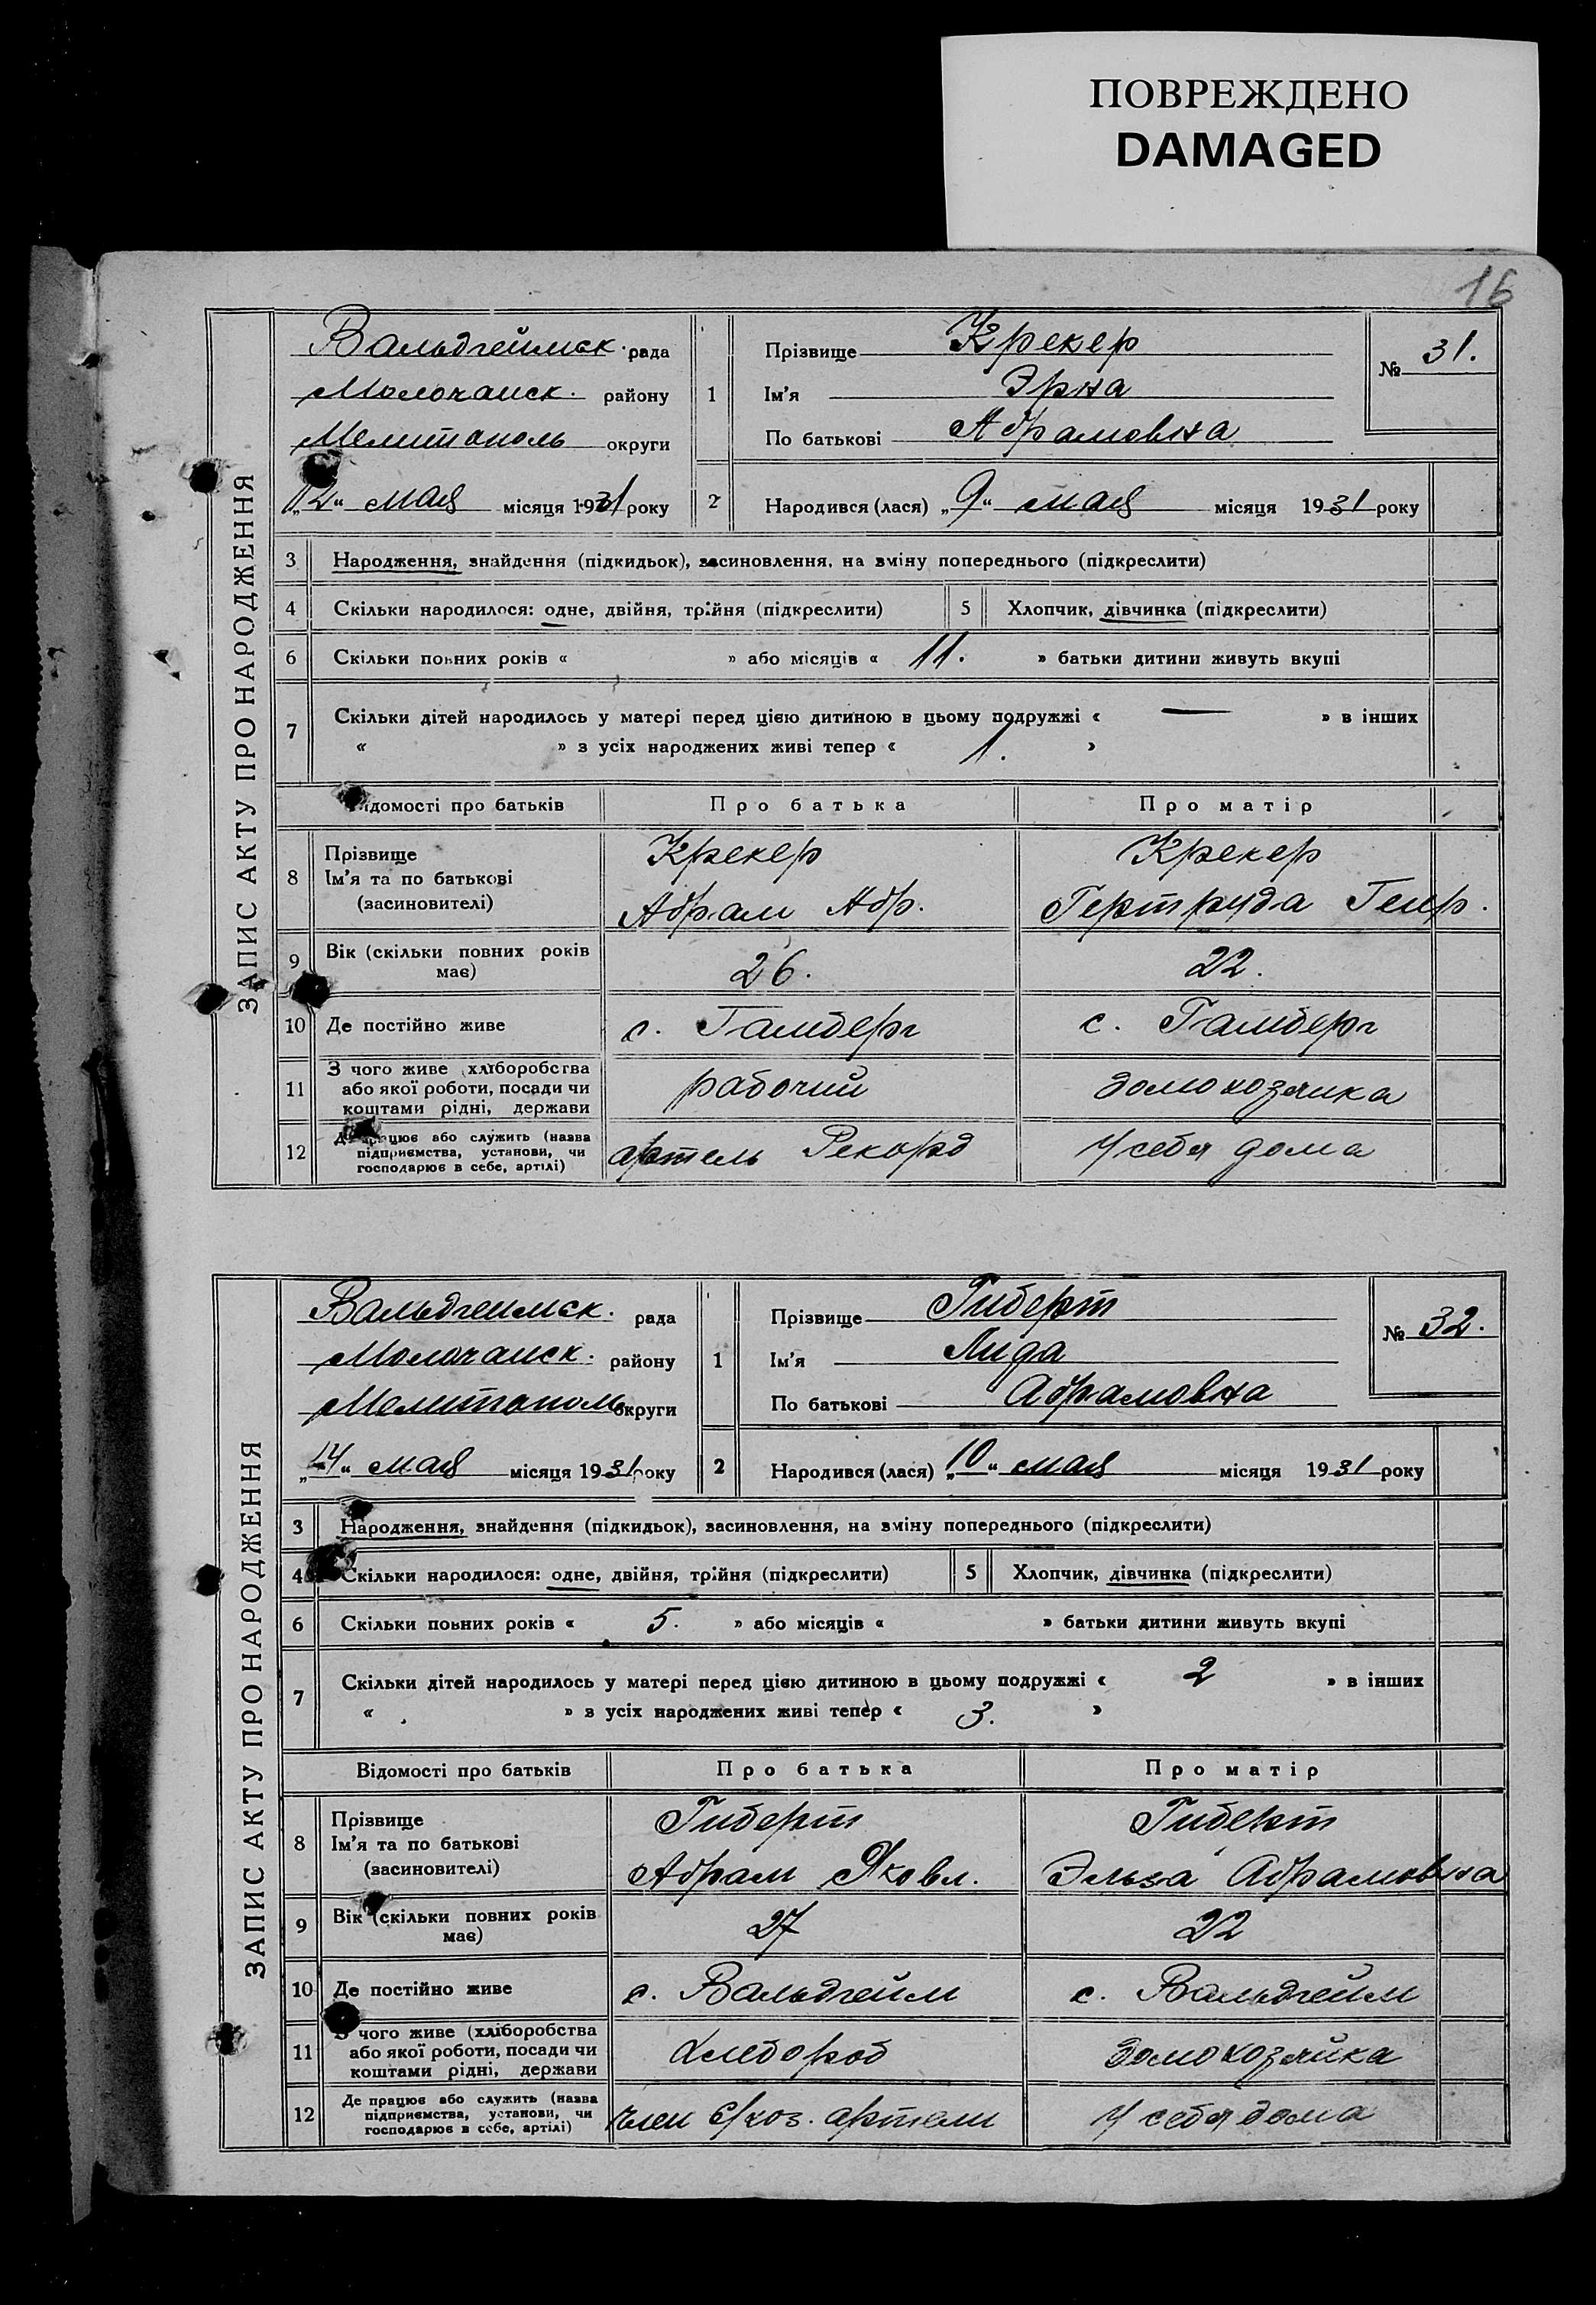 ПОВРЕЖДЕНО
DAMAGED
16
ЗАПИС АКТУ ПРО НАРОДЖЕННЯ
Вальдгеймск. рада
Молочанск. району
Мелитополь округи
„12“ мая місяця 1931 року
1
Прізвище Крекер
Ім'я Эрна
По батькові Абрамовна
№ 31.
2 Народився (лася) „9“ мая місяця 1931 року
3 Народження, знайдення (підкидьок), засиновлення, на зміну попереднього (підкреслити)
4 Скільки народилося: одне, двійня, трійня (підкреслити) 5 Хлопчик, дівчинка (підкреслити)
6 Скільки повних років « » або місяців « 11. » батьки дитини живуть вкупі
7 Скільки дітей народилось у матері перед цією дитиною в цьому подружжі « — » в інших
« » з усіх народжених живі тепер « 1. »
Відомості про батьків Про батька Про матір
8 Прізвище Крекер Крекер
Ім'я та по батькові
(засиновителі) Абрам Абр. Гертруда Генр.
9 Вік (скільки повних років
має) 26. 22.
10 Де постійно живе с. Гамберг с. Гамберг
11 З чого живе (хліборобства
або якої роботи, посади чи
коштами рідні, держави рабочий домохозяика
12 Де працює або служить (назва
підприємства, установи, чи
господарює в себе, артілі) артель Рекорд У себя дома
ЗАПИС АКТУ ПРО НАРОДЖЕННЯ
Вальдгеимск. рада
Молочанск. району
Мелитополь округи
„14“ мая місяця 1931 року
1
Прізвище Гиберт
Ім'я Лида
По батькові Абрамовна
№ 32.
2 Народився (лася) „10“ мая місяця 1931 року
3 Народження, знайдення (підкидьок), засиновлення, на зміну попереднього (підкреслити)
4 Скільки народилося: одне, двійня, трійня (підкреслити) 5 Хлопчик, дівчинка (підкреслити)
6 Скільки повних років « 5. » або місяців « » батьки дитини живуть вкупі
7 Скільки дітей народилось у матері перед цією дитиною в цьому подружжі « 2 » в інших
« » з усіх народжених живі тепер « 3. »
Відомості про батьків Про батька Про матір
8 Прізвище Гиберт Гиберт
Ім'я та по батькові
(засиновителі) Абрам Яковл. Эльза Абрамовна
9 Вік (скільки повних років
має) 27 22
10 Де постійно живе с. Вальдгейм с. Вальдгейм
11 З чого живе (хліборобства
або якої роботи, посади чи
коштами рідні, держави хлебороб домохозяйка
12 Де працює або служить (назва
підприємства, установи, чи
господарює в себе, артілі) член с/хоз. артели У себя дома